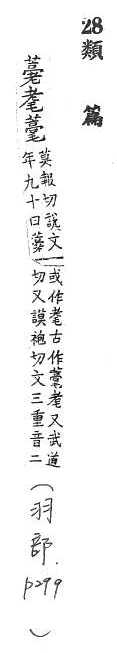 28 類 篇
耄
莫報切說文
年九十曰
或作耄古作耄又武道
切又謨袍切文三重音二
(羽部. p299)